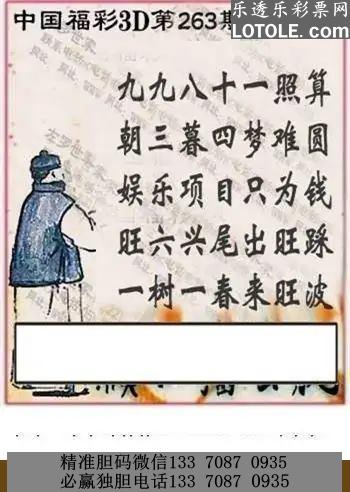 乐透乐彩票网
LOTOLE.COM
中国福彩3D第263期
九九八十一照算
朝三暮四梦难圆
娱乐项目只为钱
旺六兴尾出旺踩
一树一春来旺波
精准胆码微信133 7087 0935
必赢独胆电话133 7087 0935